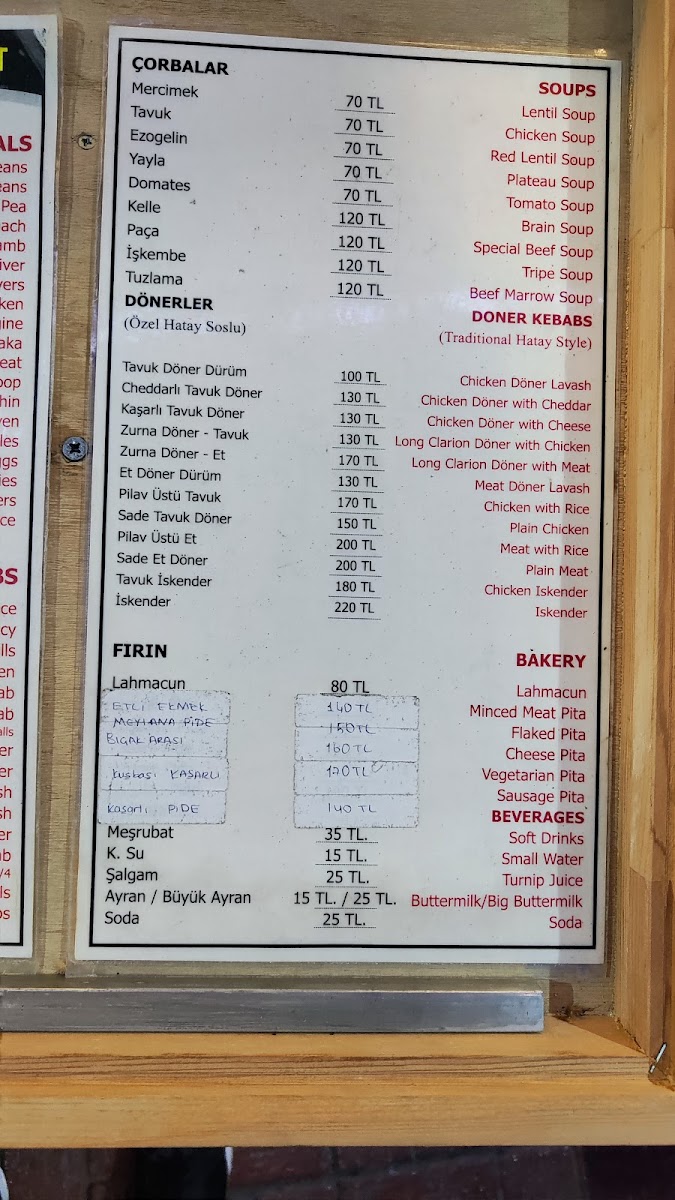 ÇORBALAR SOUPS
Mercimek 70 TL Lentil Soup
Tavuk 70 TL Chicken Soup
Ezogelin 70 TL Red Lentil Soup
Yayla 70 TL Plateau Soup
Domates 70 TL Tomato Soup
Kelle 120 TL Brain Soup
Paça 120 TL Special Beef Soup
İşkembe 120 TL Tripe Soup
Tuzlama 120 TL Beef Marrow Soup
DÖNERLER DONER KEBABS
(Özel Hatay Soslu) (Traditional Hatay Style)
Tavuk Döner Dürüm 100 TL Chicken Döner Lavash
Cheddarlı Tavuk Döner 130 TL Chicken Döner with Cheddar
Kaşarlı Tavuk Döner 130 TL Chicken Döner with Cheese
Zurna Döner - Tavuk 130 TL Long Clarion Döner with Chicken
Zurna Döner - Et 170 TL Long Clarion Döner with Meat
Et Döner Dürüm 130 TL Meat Döner Lavash
Pilav Üstü Tavuk 170 TL Chicken with Rice
Sade Tavuk Döner 150 TL Plain Chicken
Pilav Üstü Et 200 TL Meat with Rice
Sade Et Döner 200 TL Plain Meat
Tavuk İskender 180 TL Chicken Iskender
İskender 220 TL Iskender
FIRIN BAKERY
Lahmacun 80 TL Lahmacun
ETLİ EKMEK 140 TL Minced Meat Pita
MEYHANA PİDE 150TL Flaked Pita
BIÇAK ARASI 160TL Cheese Pita
Kuşbaşı KAŞARLI 170TL Vegetarian Pita
Kaşarlı PİDE 140 TL Sausage Pita
BEVERAGES
Meşrubat 35 TL. Soft Drinks
K. Su 15 TL. Small Water
Şalgam 25 TL. Turnip Juice
Ayran / Büyük Ayran 15 TL. / 25 TL. Buttermilk/Big Buttermilk
Soda 25 TL. Soda